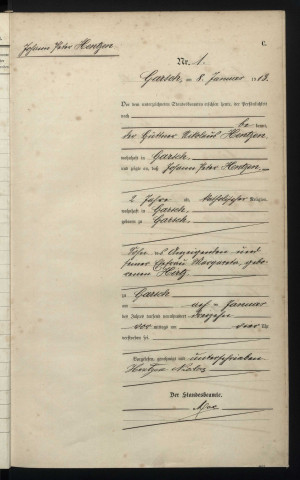 Johann Peter Hentzen
C.
Nr. 1.
Garsch am 8. Januar 1913.
Vor dem unterzeichneten Standesbeamten erschien heute, der Persönlichkeit
nach
be kannt,
der Hüttner Nikolaus Hentzen
wohnhaft in Garsch
und zeigte an, daß Johann Peter Hentzen
2 Jahre alt, katholischer Religion,
wohnhaft in Garsch
geboren zu Garsch
Sohn des Anzeigenden und
seiner Ehefrau Margareta, gebo
renen Hertz
zu Garsch
am acht Januar
des Jahres tausend neunhundert dreizehn
vor mittags um vier Uhr
verstorben sei
Vorgelesen, genehmigt und unterschrieben
Hentzen Nicolas
Der Standesbeamte.